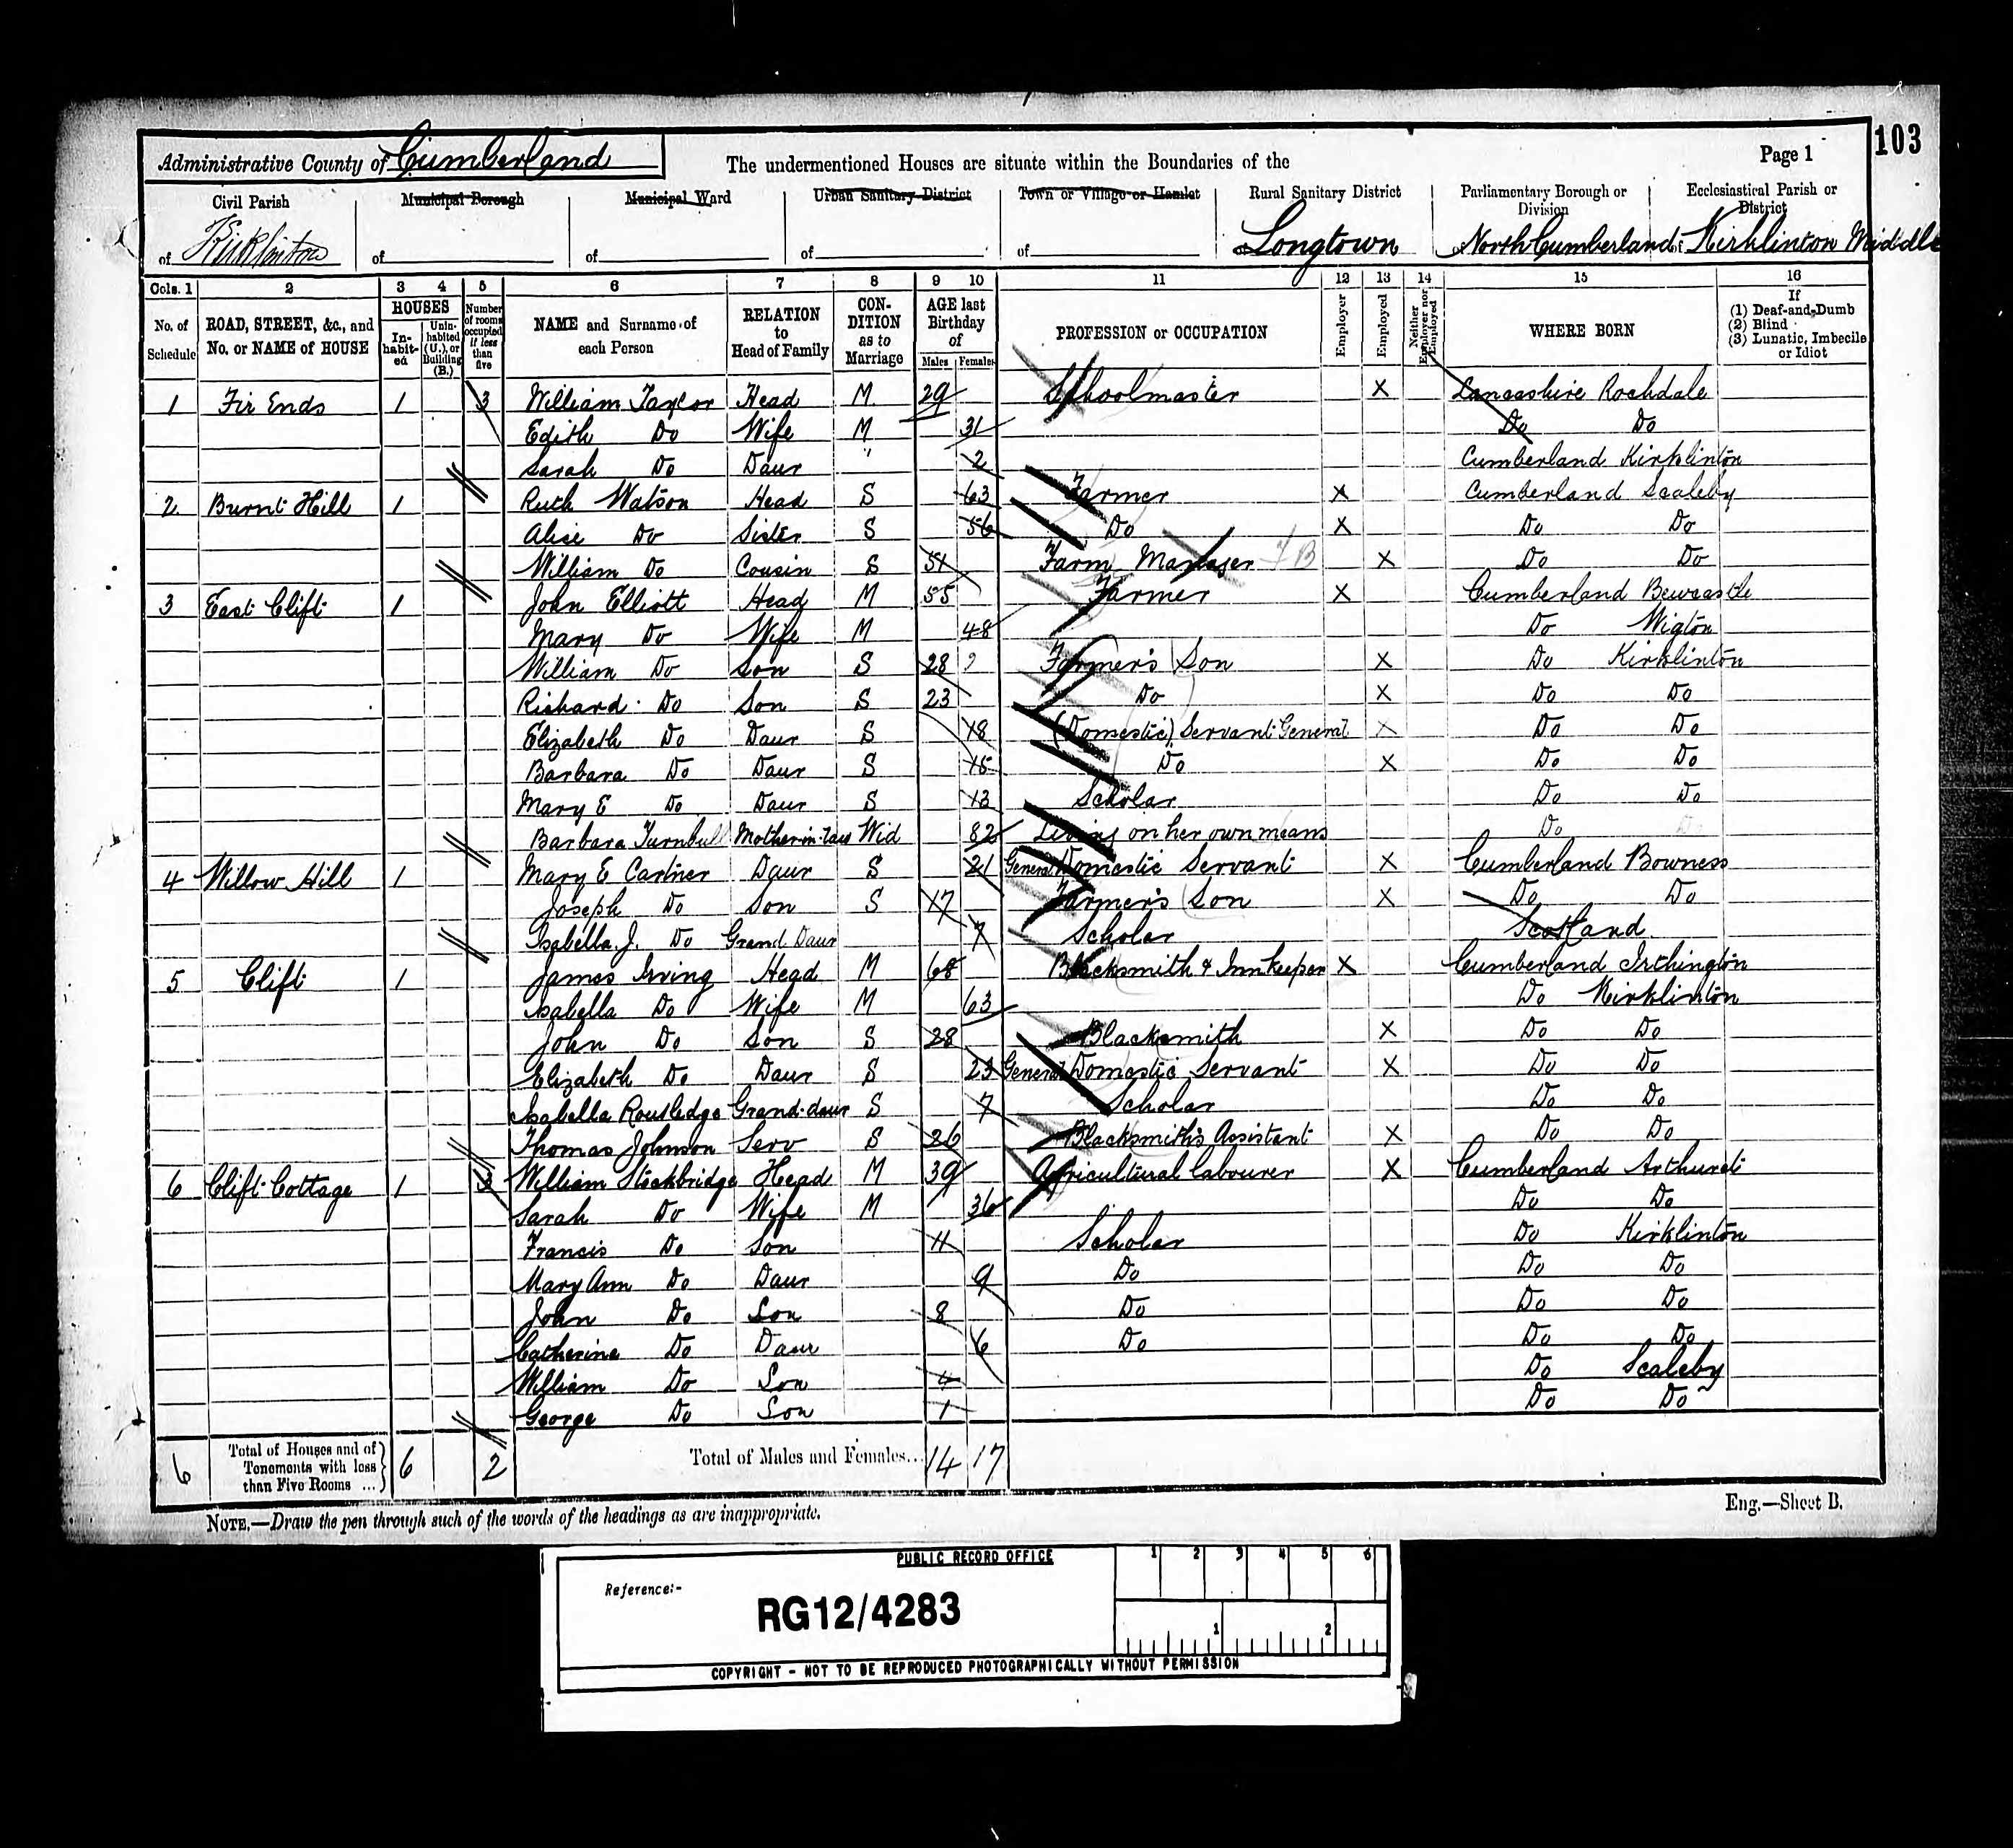 103
Administrative County of Cumberland The undermentioned Houses are situate within the Boundaries of the Page 1
Civil Parish Municipal Borough Municipal Ward Urban Sanitary District Town or Village or Hamlet Rural Sanitary District Parliamentary Borough or Division Ecclesiastical Parish or District
of Kirklinton of of of of of Longtown of North Cumberland of Kirklinton Middle
Cols. 1 2 3 4 5 6 7 8 9 10 11 12 13 14 15 16
No. of Schedule ROAD, STREET, &c., and No. or NAME of HOUSE HOUSES Inhabited Uninhabited (U.), or Building (B.) Number of rooms occupied if less than five NAME and Surname of each Person RELATION to Head of Family CONDITION as to Marriage AGE last Birthday of Males Females PROFESSION or OCCUPATION Employer Employed Neither Employer nor Employed WHERE BORN If (1) Deaf-and-Dumb (2) Blind (3) Lunatic, Imbecile or Idiot
1 Fir Ends 1 3 William Taylor Head M 29 Schoolmaster X Lancashire Rochdale
Edith Do Wife M 31 Do Do
Sarah Do Daur " 2 Cumberland Kirklinton
2 Burnt Hill 1 Ruth Watson Head S 63 Farmer X Cumberland Scaleby
Alice Do Sister S 56 Do X Do Do
William Do Cousin S 51 Farm Manager X Do Do
3 East Clift 1 John Elliott Head M 55 Farmer X Cumberland Bewcastle
Mary Do Wife M 48 Do Wigton
William Do Son S 28 Farmer's Son X Do Kirklinton
Richard Do Son S 23 Do X Do Do
Elizabeth Do Daur S 18 (Domestic) Servant General X Do Do
Barbara Do Daur S 15 Do X Do Do
Mary E Do Daur S 13 Scholar Do Do
Barbara Turnbull Mother-in-law Wid 82 Living on her own means Do Do
4 Willow Hill 1 Mary E Cartner Daur S 21 General Domestic Servant X Cumberland Bowness
Joseph Do Son S 17 Farmer's Son X Do Do
Isabella J. Do Grand Daur 7 Scholar Scotland
5 Clift 1 James Irving Head M 68 Blacksmith & Innkeeper X Cumberland Irthington
Isabella Do Wife M 63 Do Kirklinton
John Do Son S 28 Blacksmith X Do Do
Elizabeth Do Daur S 23 General Domestic Servant X Do Do
Isabella Routledge Grand-daur S 7 Scholar Do Do
Thomas Johnson Serv S 26 Blacksmith's Assistant X Do Do
6 Clift Cottage 1 3 William Stockbridge Head M 39 Agricultural labourer X Cumberland Arthuret
Sarah Do Wife M 36 Do Do
Francis Do Son 11 Scholar Do Kirklinton
Mary Ann Do Daur 9 Do Do Do
John Do Son 8 Do Do Do
Catherine Do Daur 6 Do Do Do
William Do Son 4 Do Scaleby
George Do Son 1 Do Do
6 Total of Houses and of Tenements with less than Five Rooms ... 6 2 Total of Males and Females... 14 17
NOTE.—Draw the pen through such of the words of the headings as are inappropriate.
Eng.—Sheet B.
PUBLIC RECORD OFFICE 1 2 3 4 5 6
Reference:-
RG12/4283
1 2
COPYRIGHT - NOT TO BE REPRODUCED PHOTOGRAPHICALLY WITHOUT PERMISSION